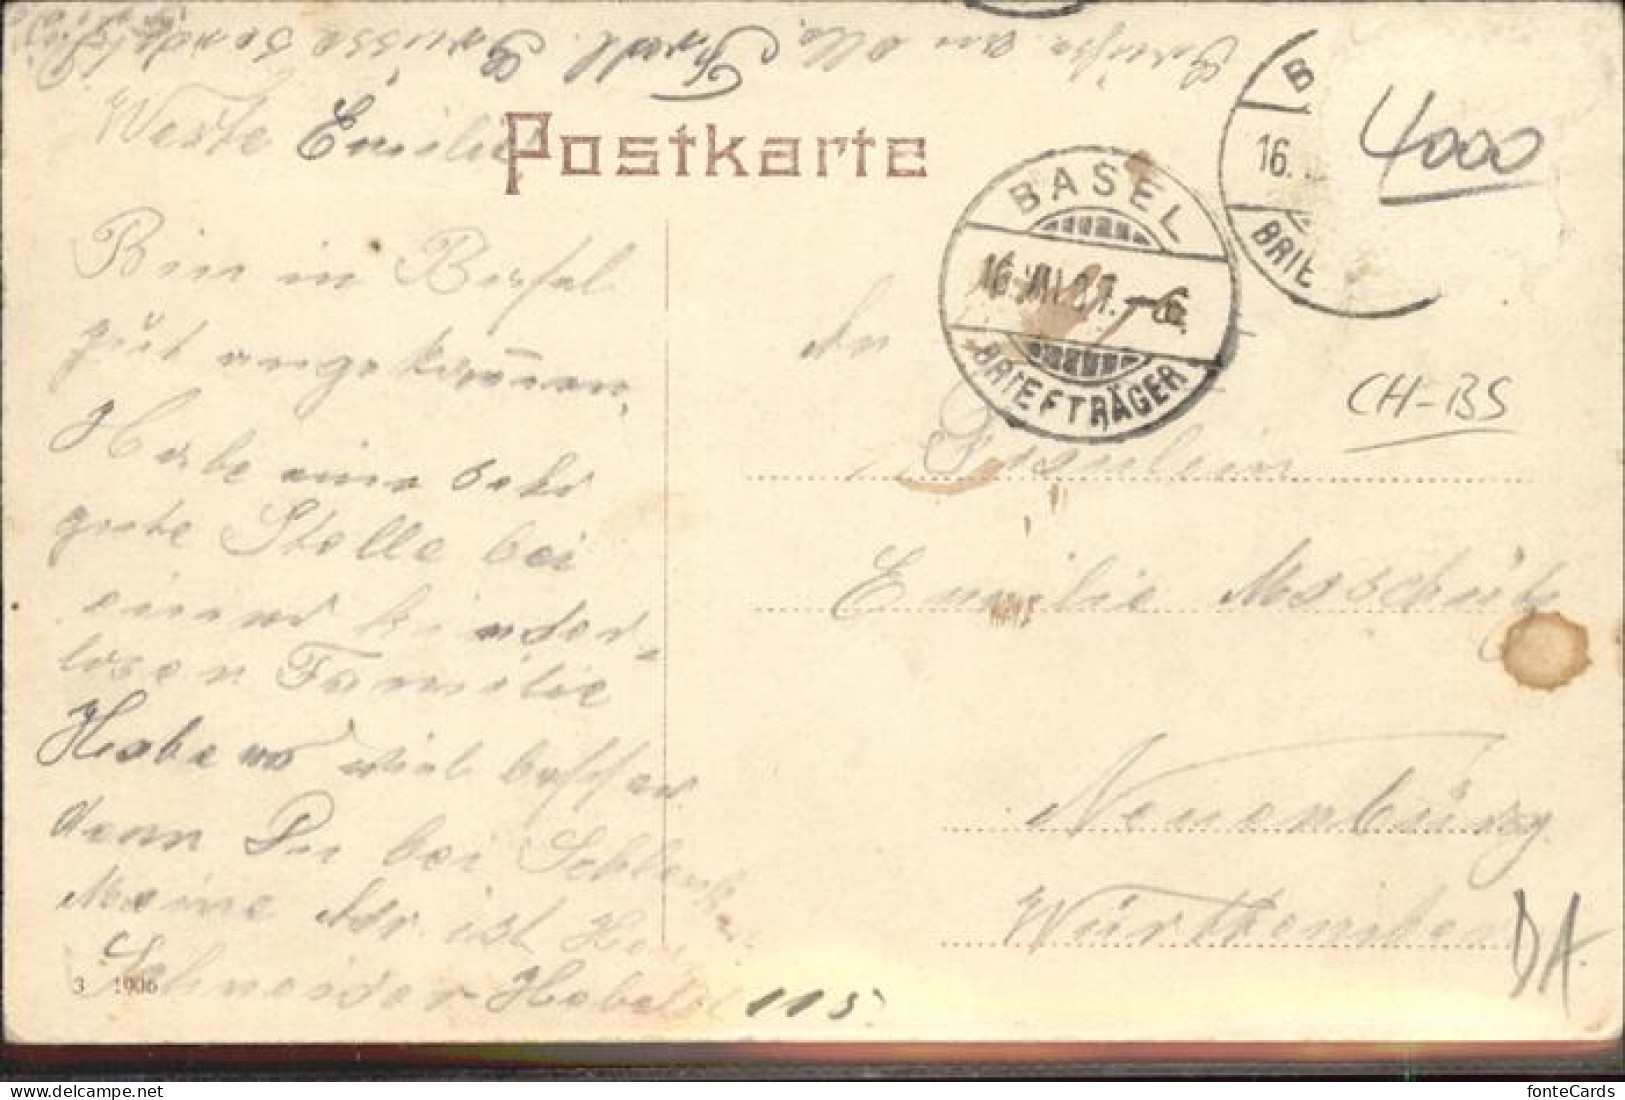 Grüsse an alle
Werte Emilie
Postkarte
Bin in Basel
gut angekommen.
Habe eine sehr
gute Stelle bei
einer kinder-
losen Familie
Habe es viel besser
denn Du bei
Meine Adr. ist
Schneider
115
3 1906
BASEL
16.VIII.07.-6
BRIEFTRÄGER
B
16.
BRIE
4000
CH-BS
An
Fräulein
Emilie
Neuenbürg
Württemberg
DA.
fonteCards